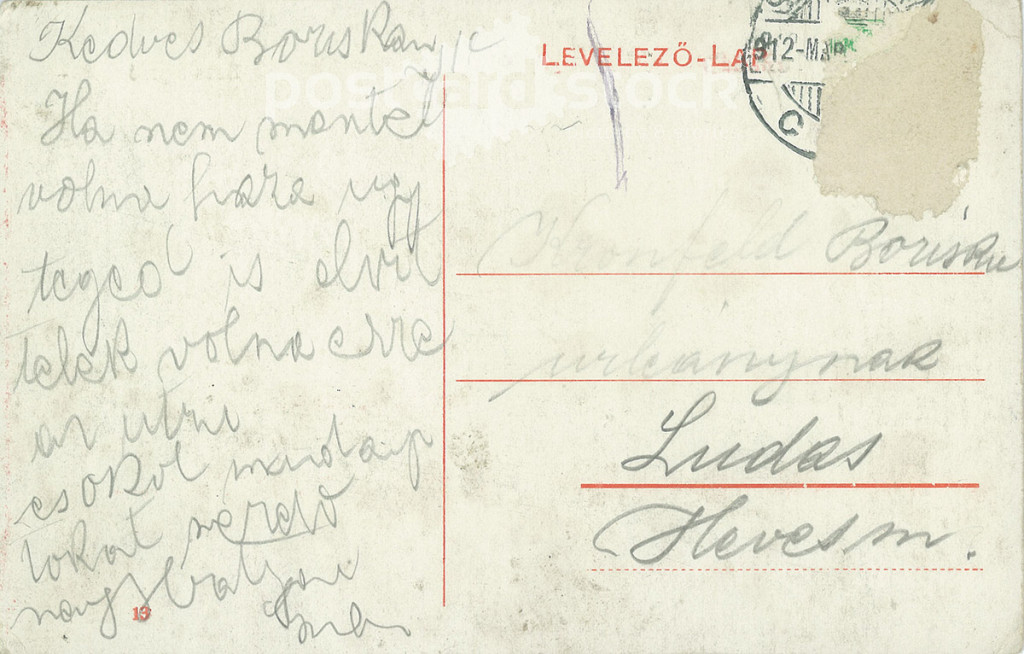 Kedves Boriskam
Ha nem mentel
volna haza ugy
teged is elvit
telek volna erre
az utni
csokol mindanyi
tokat szerető
nagybatyai
LEVELEZŐ-LAP
912-MAR
C
Kronfeld Boriska
urleanynak
Ludas
Hevesm.
13
postcard stock